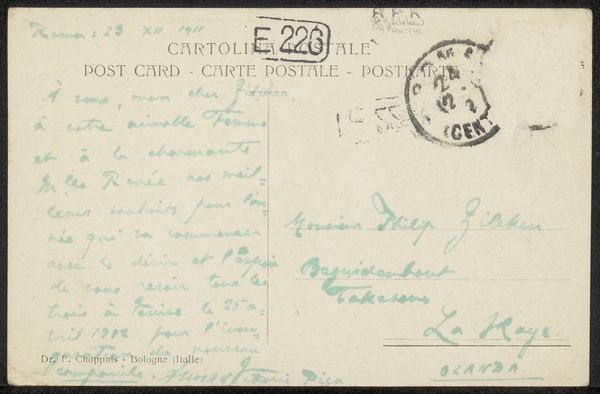 Roma: 23 XII 1911
E 226
CARTOLINA POSTALE
POST CARD - CARTE POSTALE - POSTKARTE
À vous, mon cher Zilcken,
à votre aimable Femme
et à la charmante
Mlle Renée nos meil-
leurs souhaits pour l'an-
née qui va commencer
avec le désir et l'espoir
de vous revoir tous les
trois à Venise le 25 a-
vril 1912 pour l'inau-
guration du nouveau
campanile.
Monsieur Philip Zilcken
Bezuidenhout
La Haye
OLANDA
Dr. F. Chappuis - Bologne (Italie)